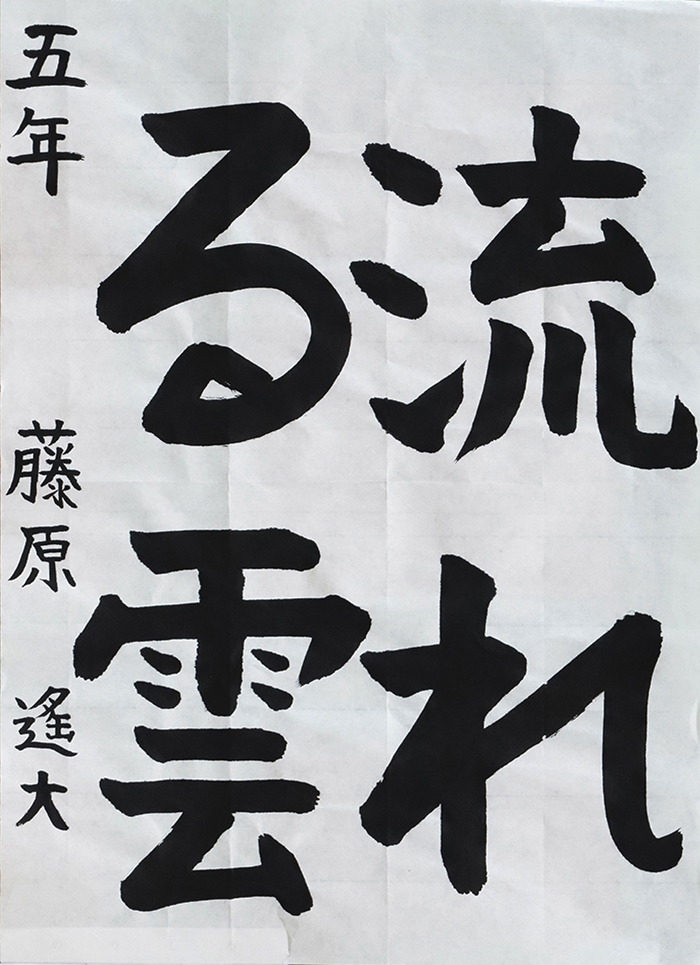 流れ
る雲
五年 藤原 遙大